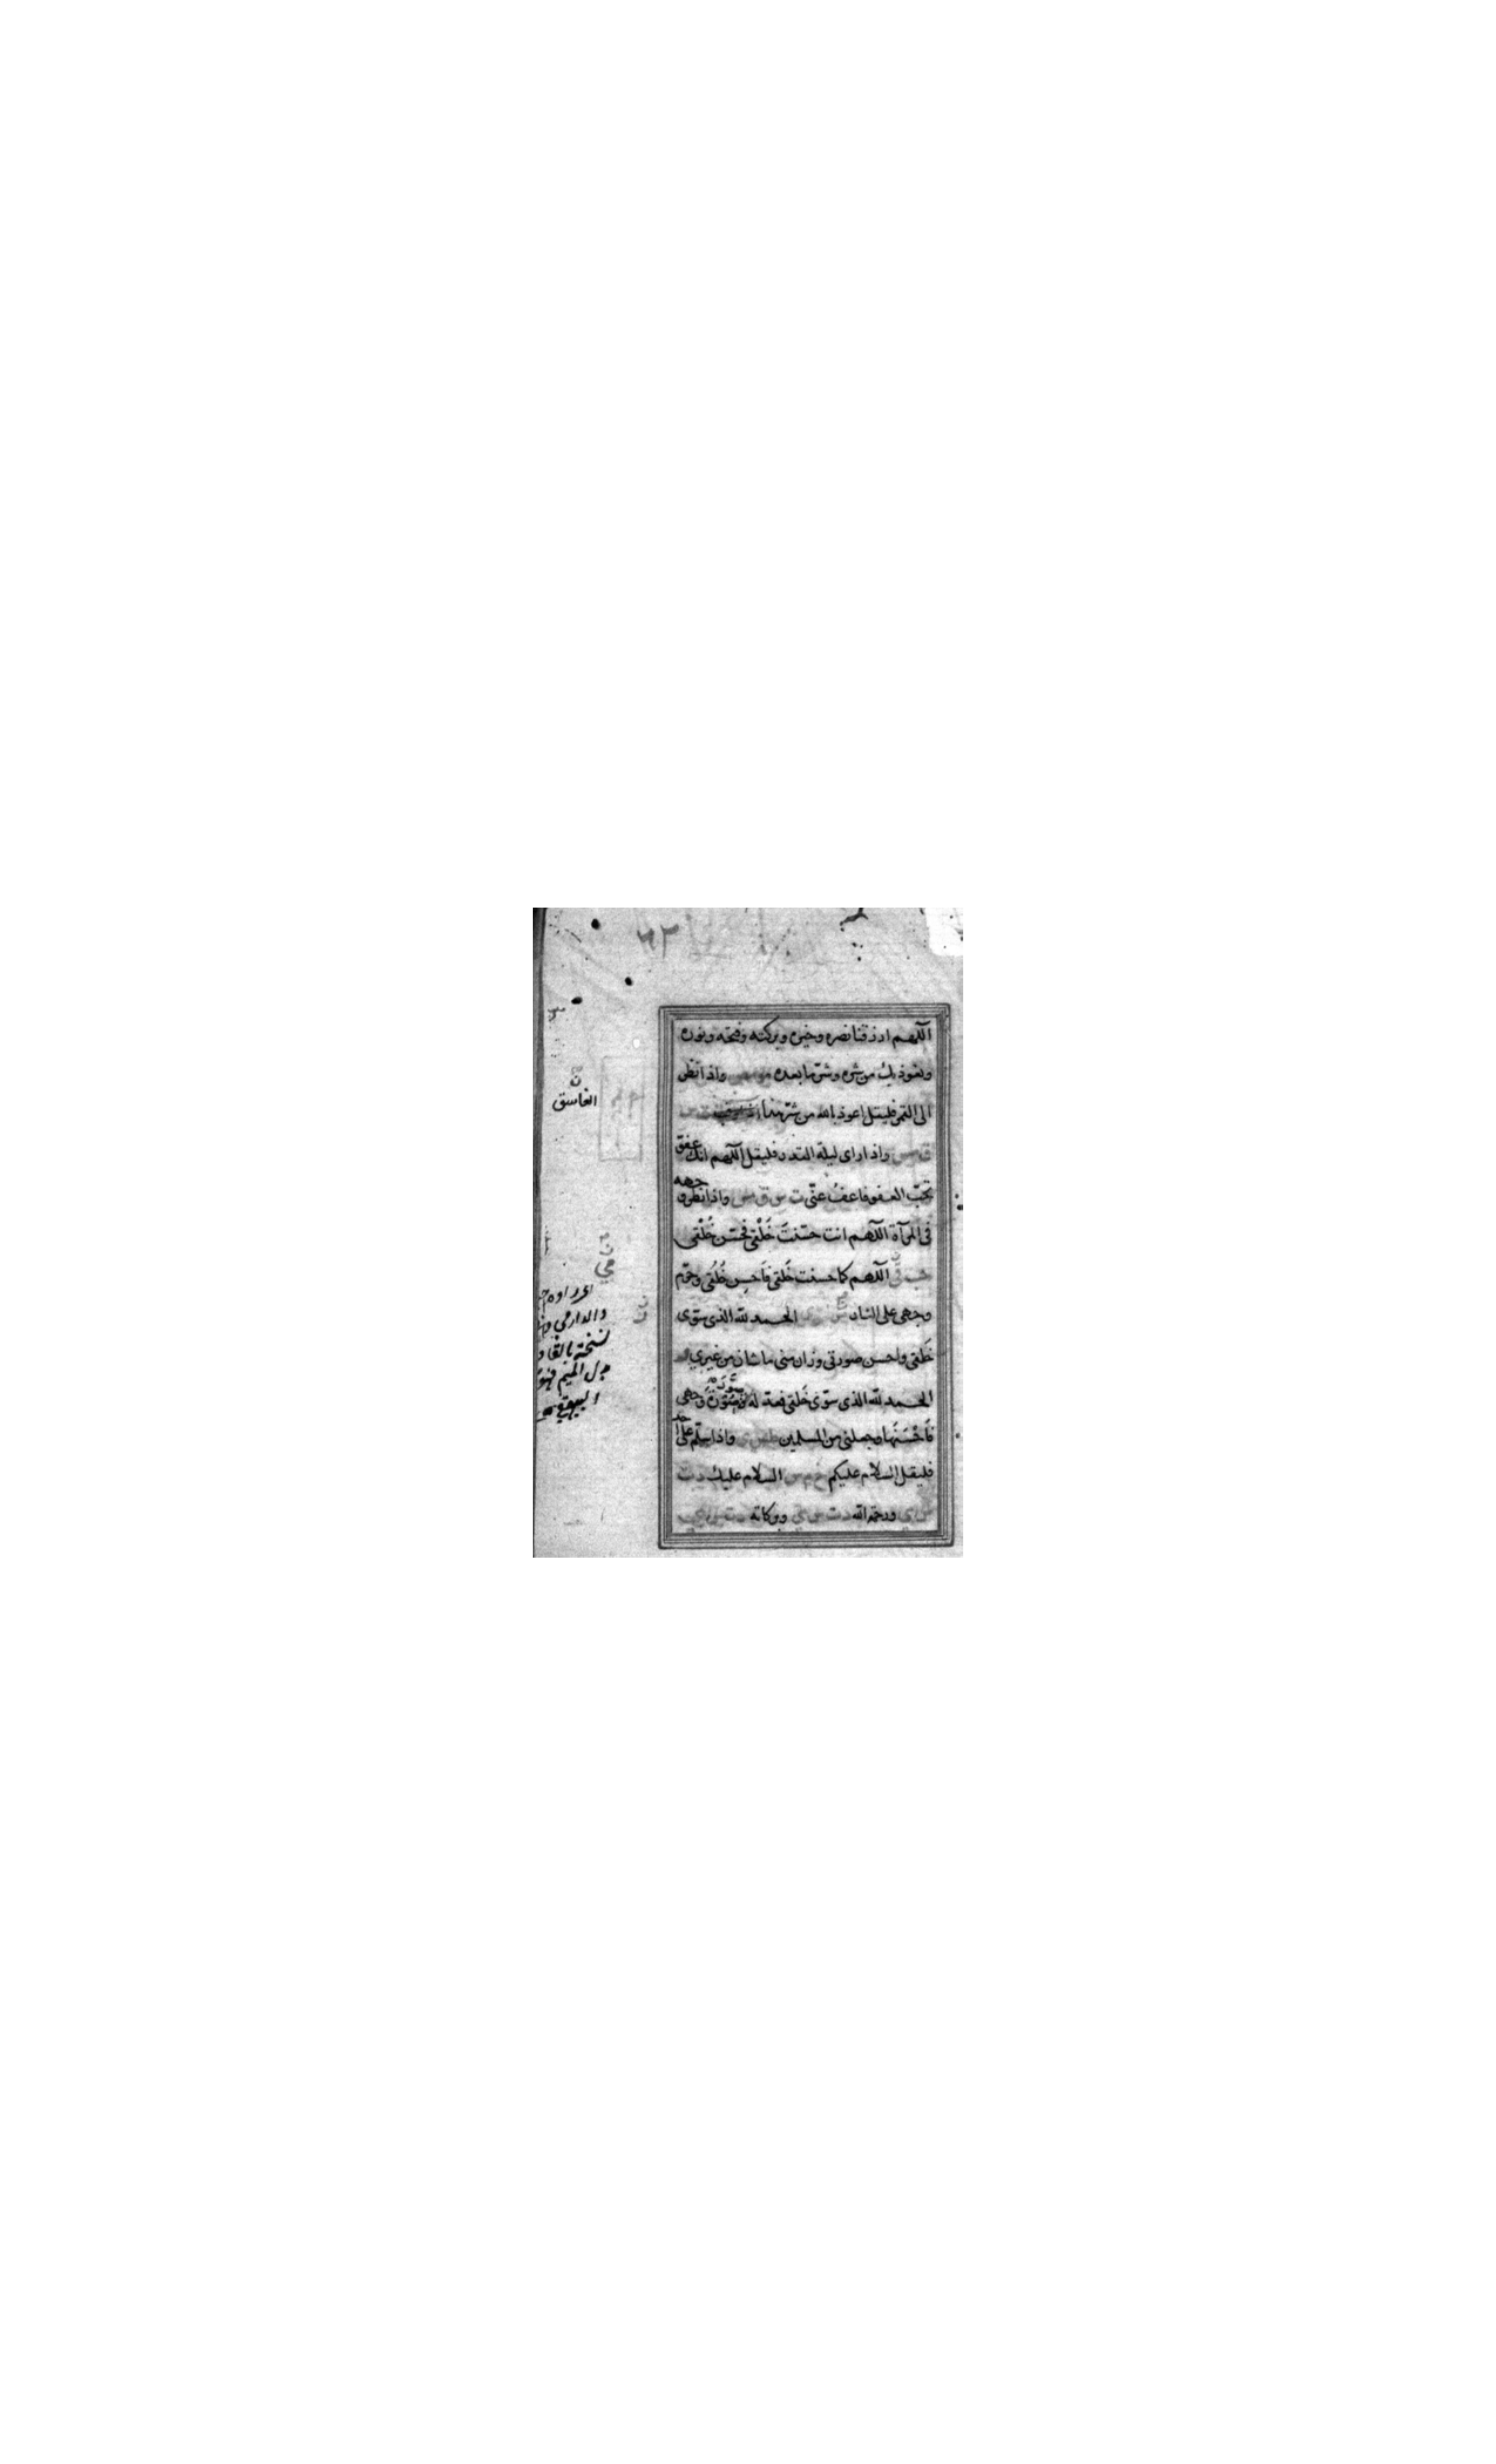 ٦٢
اللهم ارزقنا نصره وخيره وبركته وفتحه ونوره
ونعوذ بك من شره وشر ما بعده واذا نظر
الى القمر فليقل اعوذ بالله من شر هذا
واذا راى ليلة القدر فليقل اللهم انك عفو
تحب العفو فاعفُ عنّى ت س ق مس واذا نظر وجهه
فى المرآة اللهم انت حسّنتَ خَلْقى فحسّن خُلُقى
حب اللهم كما حسنت خَلقى فَاَحسِن خُلُقى وحرّم
وجهى على النار الحمد لله الذى سوّى
خَلقى واحسن صورتى وزان منى ما شان من غيرى
الحمد لله الذى سوّى خَلقى فعدله وجهى
فَاَحْسَنَهَا وجعلنى من المسلمين واذا سلّم على احد
فليقل السلام عليكم خ م س السلام عليك د ت
ورحمة الله د ت س وبركاته
الغاسق
والدارمي
نسخة
بدل الميم
البيهقي